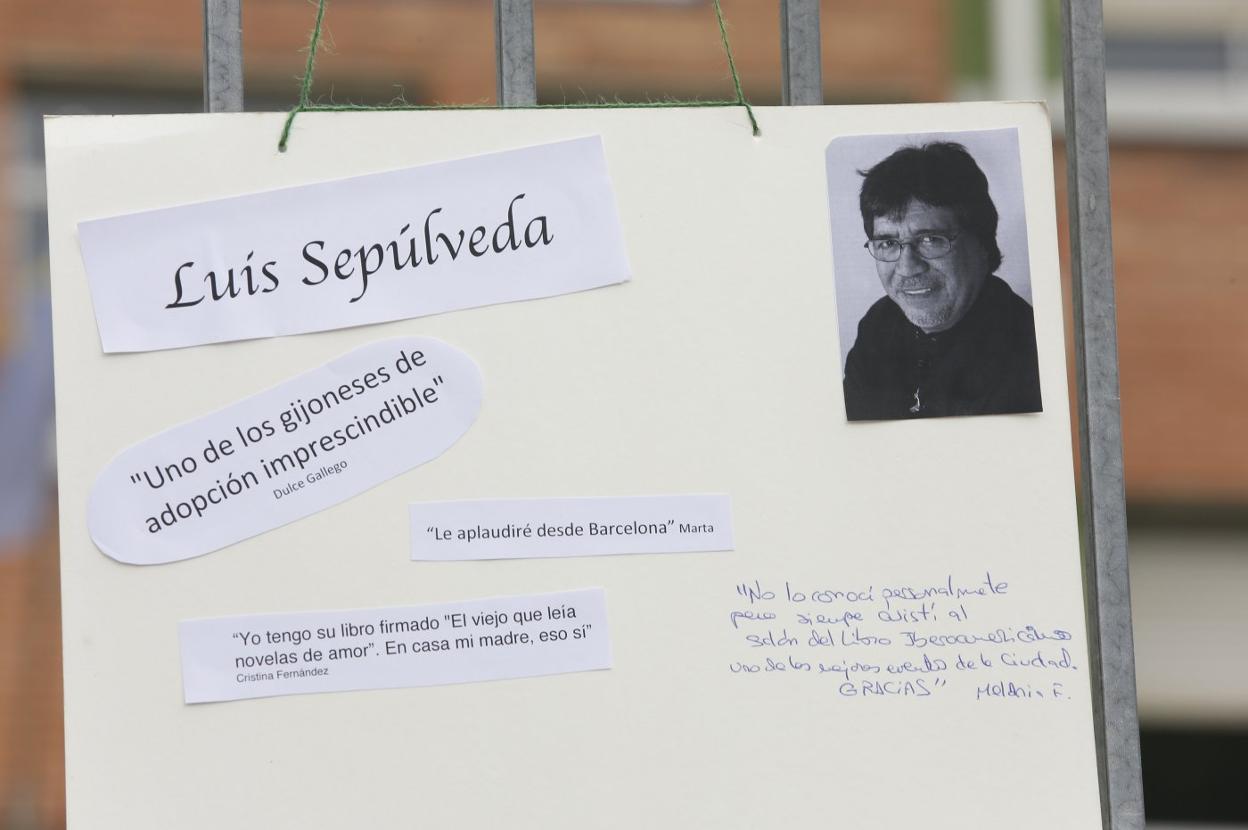 Luis Sepúlveda
"Uno de los gijoneses de
adopción imprescindible"
Dulce Gallego
“Le aplaudiré desde Barcelona” Marta
“Yo tengo su libro firmado "El viejo que leía
novelas de amor”. En casa mi madre, eso sí”
Cristina Fernández
"No lo conocí personalmente
pero siempre asistí al
salón del Libro Iberoamericano
uno de los mejores eventos de la Ciudad.
GRACIAS" Melania F.